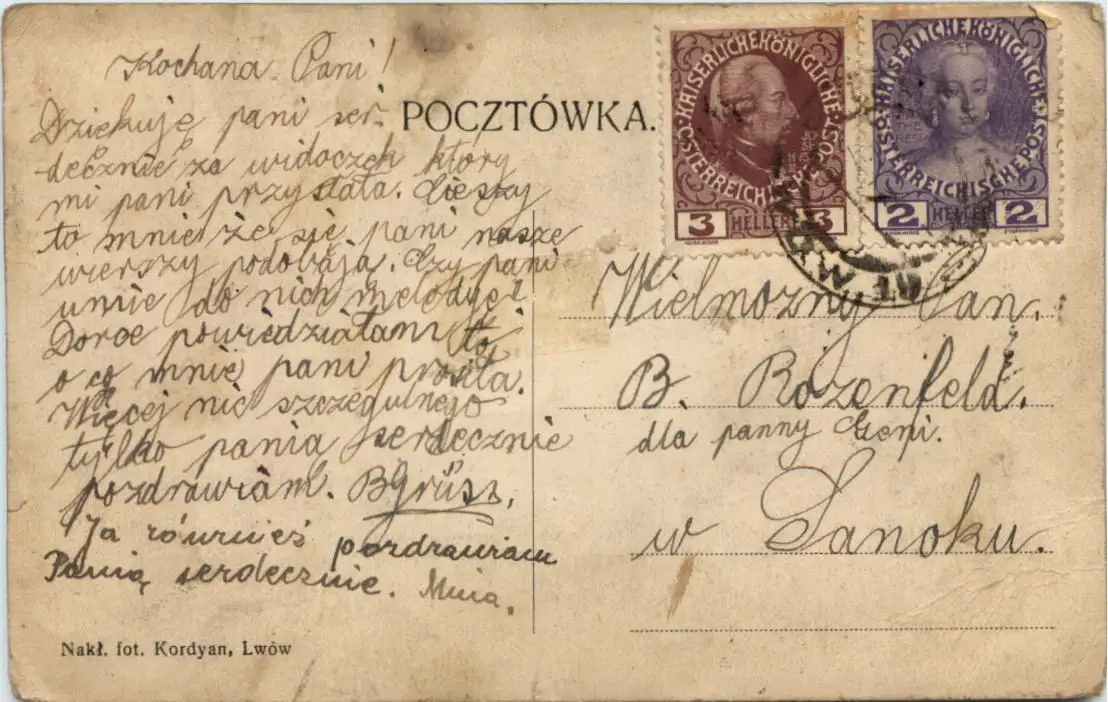 Kochana Pani!
Dziękuję pani ser-
decznie za widoczek który
mi pani przysłała. Cieszy
to mnie że się pani nasze
wierszy podobają. Czy pani
umie do nich melodyę?
Dorce powiedziałam to
o co mnie pani prosiła.
Więcej nic szczegulnego
tylko panią serdecznie
pozdrawiam. BGrüsz,
Ja również pozdrawiam
Panią serdecznie. Mina.
Nakł. fot. Kordyan, Lwów
POCZTÓWKA.
KAISERLICHE KÖNIGLICHE ÖSTERREICHISCHE POST
3 HELLER 3
KAISERLICHE KÖNIGLICHE ÖSTERREICHISCHE POST
2 HELLER 2
Wielmożny Pan.
B. Rozenfeld.
dla panny Geni.
w Sanoku.